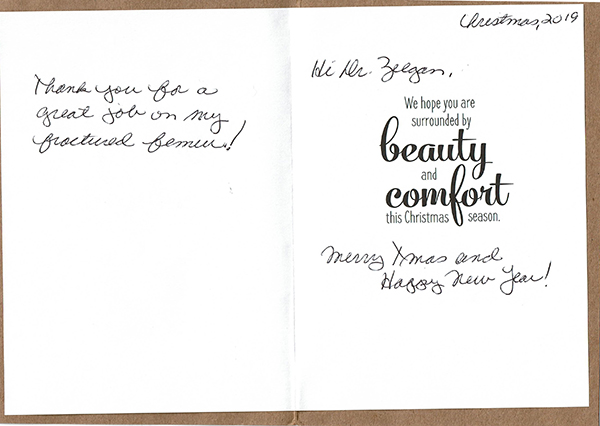 Thank you for a
great job on my
fractured femur!
Christmas, 2019
Hi Dr. Zeegan,
We hope you are
surrounded by
beauty
and
comfort
this Christmas season.
Merry Xmas and
Happy New Year!